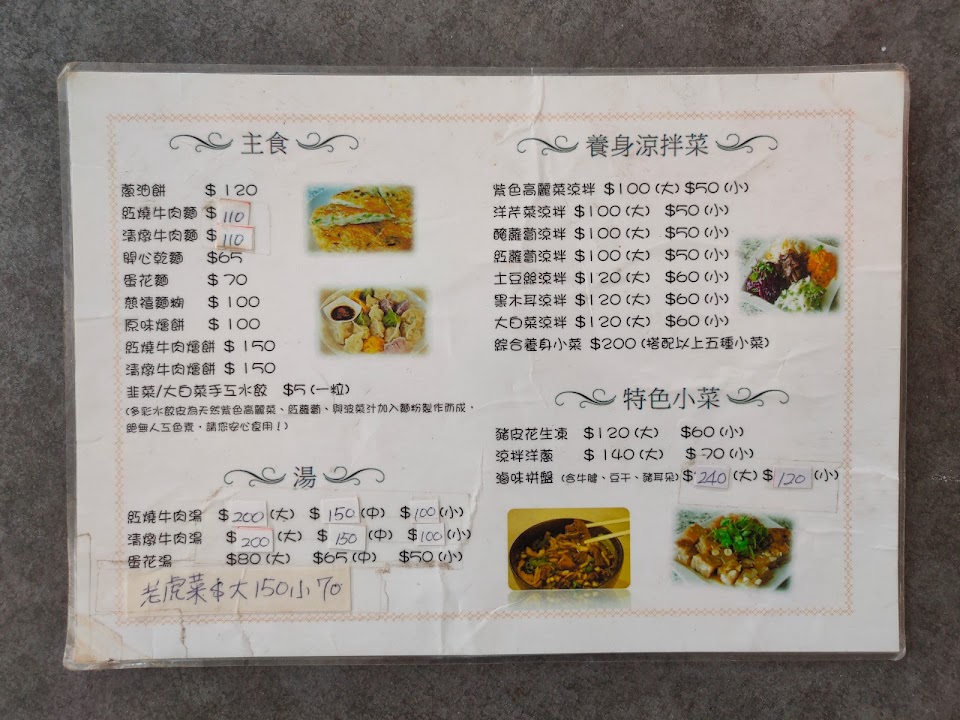 主食
蔥油餅 $120
紅燒牛肉麵 $110
清燉牛肉麵 $110
開心乾麵 $65
蛋花麵 $70
慈禧麵糊 $100
原味燴餅 $100
紅燒牛肉燴餅 $150
清燉牛肉燴餅 $150
韭菜/大白菜手工水餃 $5(一粒)
(多彩水餃皮為天然紫色高麗菜、紅蘿蔔、與波菜汁加入麵粉製作而成,
絕無人工色素,請您安心食用!)
湯
紅燒牛肉湯 $200(大) $150(中) $100(小)
清燉牛肉湯 $200(大) $150(中) $100(小)
蛋花湯 $80(大) $65(中) $50(小)
老虎菜$大150小70
養身涼拌菜
紫色高麗菜涼拌 $100(大) $50(小)
洋芹菜涼拌 $100(大) $50(小)
醃蘿蔔涼拌 $100(大) $50(小)
紅蘿蔔涼拌 $100(大) $50(小)
土豆絲涼拌 $120(大) $60(小)
黑木耳涼拌 $120(大) $60(小)
大白菜涼拌 $120(大) $60(小)
綜合養身小菜 $200(搭配以上五種小菜)
特色小菜
豬皮花生凍 $120(大) $60(小)
涼拌洋蔥 $140(大) $70(小)
滷味拼盤 (含牛腱、豆干、豬耳朵) $240(大) $120(小)